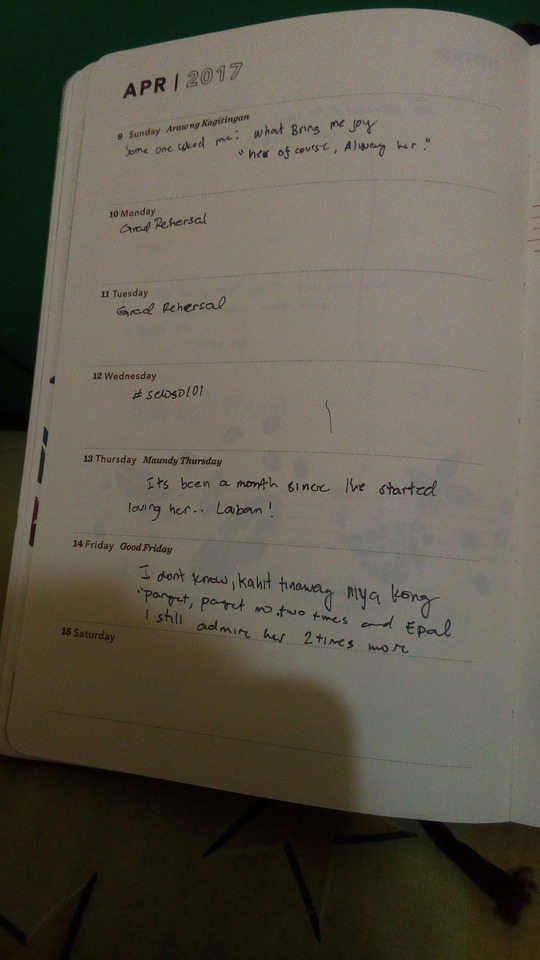 APR | 2017
9 Sunday Araw ng Kagitingan
Some one asked me: What Bring me joy
"her of course, Alway her."
10 Monday
Grad Rehersal
11 Tuesday
Grad Rehersal
12 Wednesday
#selos0101
13 Thursday Maundy Thursday
Its been a month since I've started
loving her.. Laban!
14 Friday Good Friday
I dont know, kahit tinawag niya kong
"panget, panget mo. two times and Epal
I still admire her 2 times more
15 Saturday